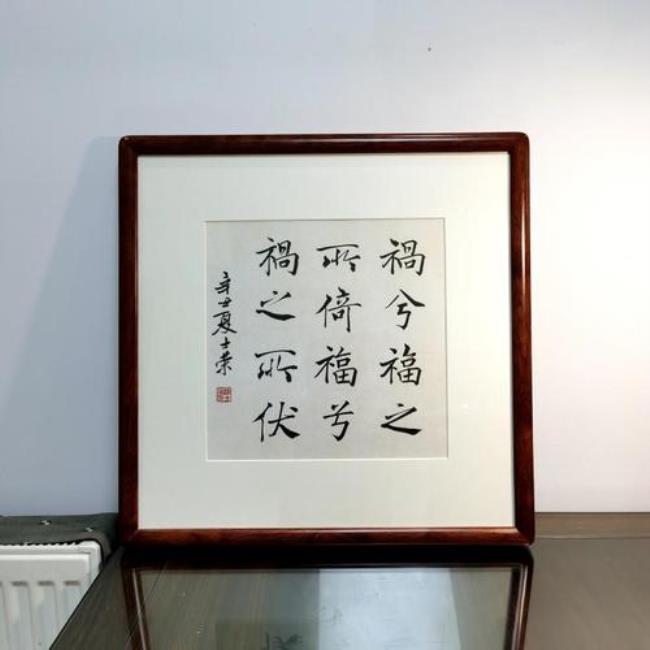 禍兮福之
所倚福兮
禍之所伏
辛丑夏士荣